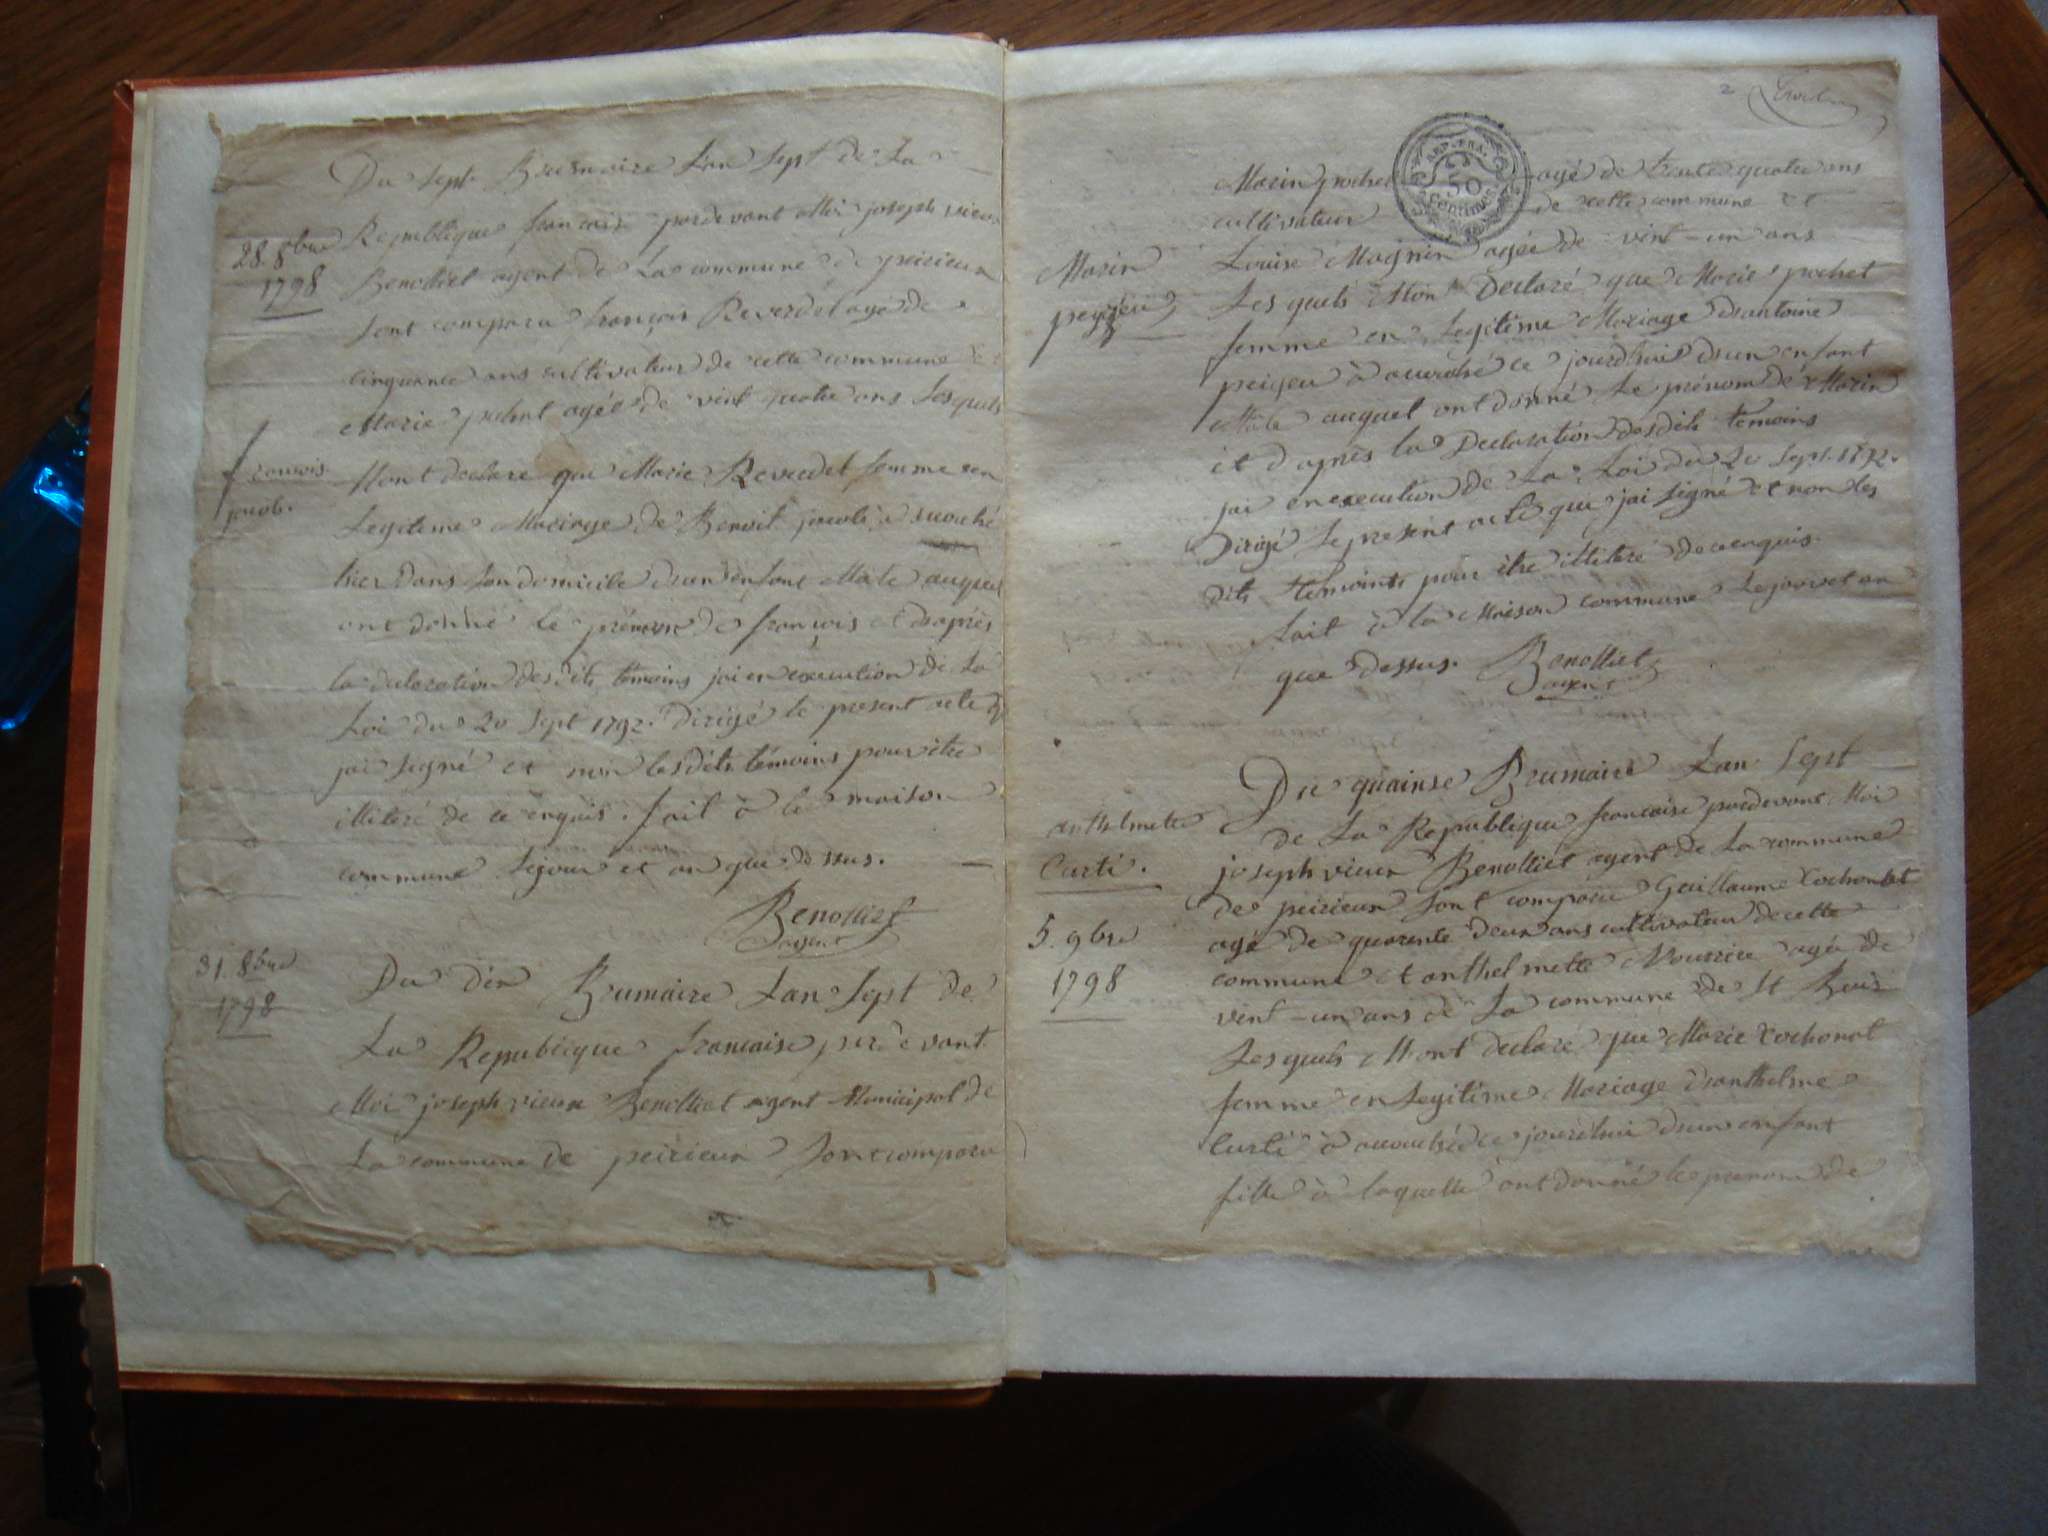 Du sept Brumaire Lan sept de La
28. 8bre
1798
Republique francaise pardevant Moi joseph vieux
Benolliet agent de La commune de peizieux
sont comparu françois Reverdel agé de
cinquance ans cultivateur de cette commune et
Marie agée de vint quatre ans Lesquels
francois
jacob.
Mont declare que Marie Reverdel femme en
Legitime Mariage de Benoit jacob a accouché
hier dans son domicile d'un enfant Male auquel
ont donné le prénom de françois et d'après
la declaration desdits témoins jai en execution de La
Loi du 20 Sept 1792. dirigé le present acte q
jai signé et non lesdits témoins pour être
illiteré de ce enquis. fait à la maison
commune Lejour et an que dessus.
Benolliet
agent
31. 8bre
1798
Du dix Brumaire Lan Sept de
La Republique francaise par devant
Moi joseph vieux Benolliet agent Municipal de
La commune de peizieux sont comparu
2
REP. FRA.
50
Centimes
Marin pochet agé de trente quatre ans
cultivateur de cette commune et
Marin
peyzieu
Louise Magnin agée de vint-un ans
Lesquels Mon Declaré que Marie pochet
femme en Legitime Mariage d'antoine
peizeu à accouché ce jourdhui d'un enfant
Male auquel ont donné Le prénom de Marin
et d'après la Declaration desdits temoins
jai en execution de La Loi du 20 Sept. 1792.
Dirigé Le present acte que jai signé et non les
dits temoints pour être illiteré de ce enquis.
fait à la Maison commune Le jour et an
que dessus. Benolliet
agent
Du quainse Brumaire Lan Sept
anthelmette
Curti.
5. 9bre
1798
de La Republique francaise pardevant Moi
joseph vieux Benolliet agent de La commune
de peizieux sont comparu Guillaume Cochonat
agé de quarente deux ans cultivateur de cette
commune et anthelmette Mourice agée de
vint-un ans de La commune de St Bois
Lesquels M'ont declaré que Marie Cochonat
femme en Legitime Mariage d'anthelme
Curti à accouché ce jourdhui d'un enfant
fille à laquelle ont donné le prenom de